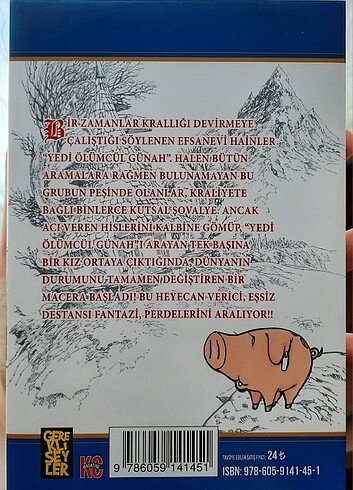 BİR ZAMANLAR KRALLIĞI DEVİRMEYE
ÇALIŞTIĞI SÖYLENEN EFSANEVİ HAİNLER
"YEDİ ÖLÜMCÜL GÜNAH". HALEN BÜTÜN
ARAMALARA RAĞMEN BULUNAMAYAN BU
GRUBUN PEŞİNDE OLANLAR, KRALİYETE
BAĞLI BİNLERCE KUTSAL ŞOVALYE. ANCAK
ACI VEREN HİSLERİNİ KALBİNE GÖMÜP, "YEDİ
ÖLÜMCÜL GÜNAH"I ARAYAN TEK BAŞINA
BİR KIZ ORTAYA ÇIKTIĞINDA, DÜNYANIN
DURUMUNU TAMAMEN DEĞİŞTİREN BİR
MACERA BAŞLADI! BU HEYECAN VERİCİ, EŞSİZ
DESTANSI FANTAZİ, PERDELERİNİ ARALIYOR!!
GERE
KLİ
ŞEY
LER
KC
9 786059 141451
TAVSİYE EDİLEN SATIŞ FİYATI: 24 ₺
ISBN: 978-605-9141-45-1